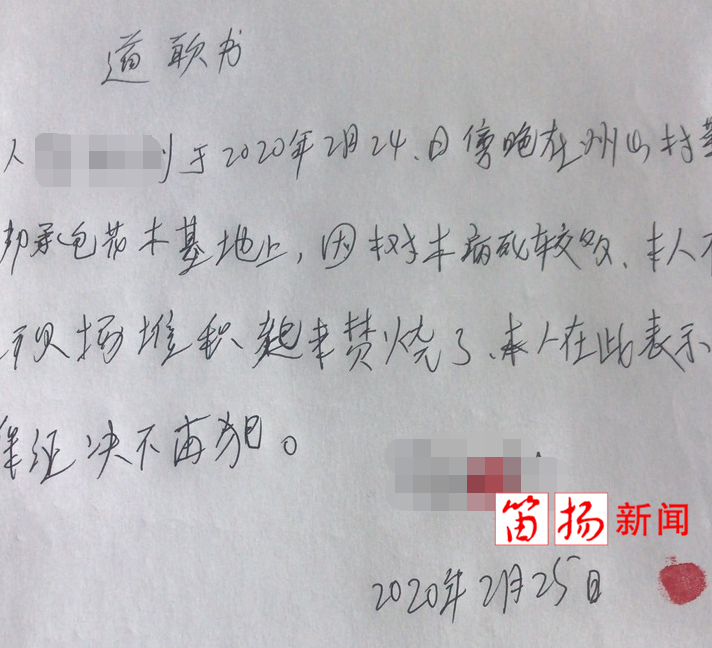 道歉书
人 于2020年2月24.日傍晚在州山村
承包苗木基地上，因树木病死较多、本人不
堆积起来焚烧了、本人在此表示
保证决不再犯。
笛扬新闻
2020年2月25日